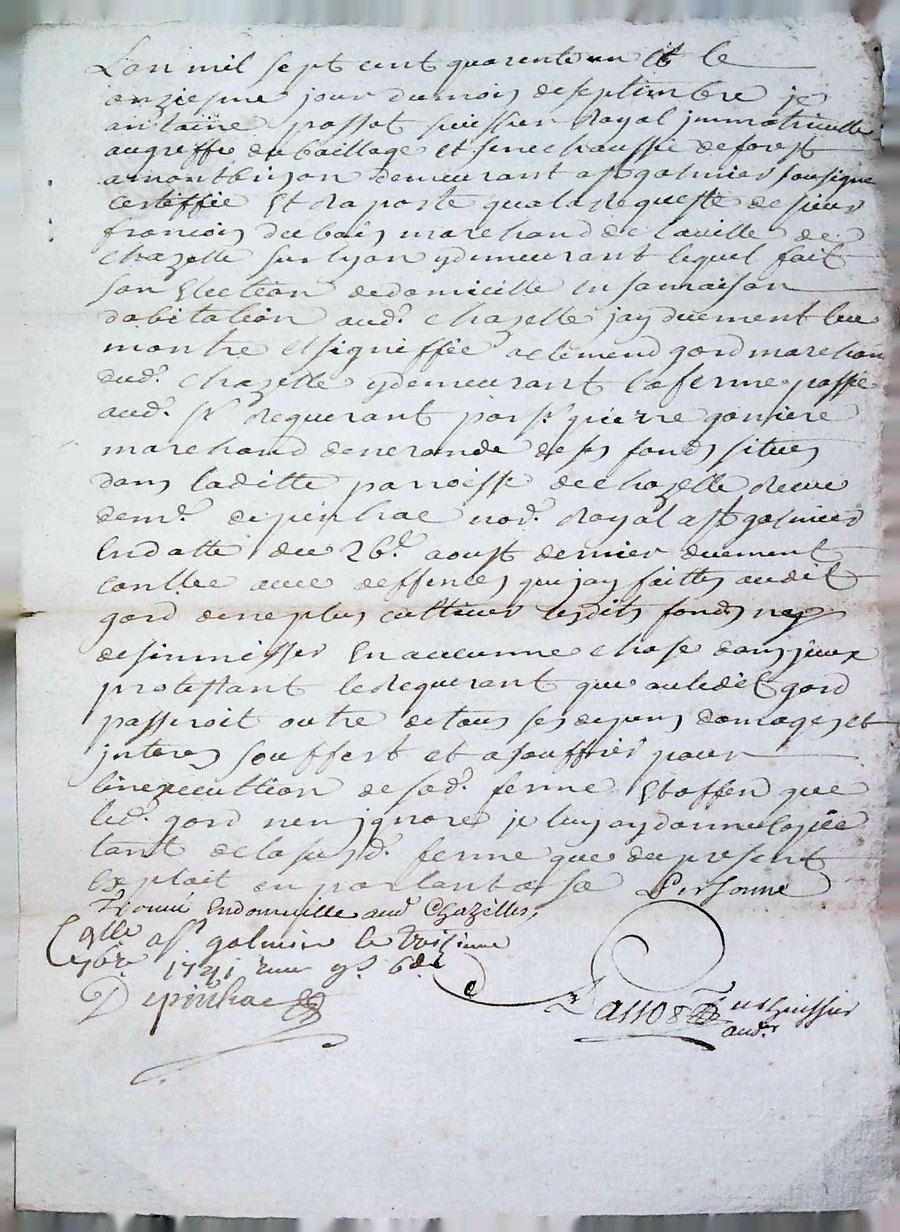 Lan mil sept cent quarente un et le
onziesme jour du mois de septembre je
antoine passot huissier Royal jmmatriculle
au greffe du baillage et senechaussée de forest
a montbrison demeurant a st galmier sousigne
certiffie Et raporte qua la requeste de sieur
francois dubais marchand de la ville de
chazelle sur lyon y demeurant lequel fait
son Election de domicille en sa maison
dabitation aud. chazelle jay duement leu
montré et signiffiée a clemend gord marchan
dud. chazelle y demeurant la ferme passée
aud. sr requerant par sr pierre
marchand de nerande de ses fonds situes
dans laditte parroisse de chazelle Receue
de me. depinhac not. Royal a st galmier
En datte du 26e aoust dernier duement
conllee avec deffences que jay faittes audit
gord de ne plus cultiver lesdits fonds ny
desinmisser En aucunne chose dans jceux
protestant le requerant que au ledit gord
passeroit outre de tous ses depens domages et
jnteres souffert et a souffrir pour
linexecuttion de sad. ferme Et affen que
led. gord nen jgnore je luy ay donne coppie
tant de la susd. ferme que du present
Exploit en parlant a sa Personne
Trouvé En domicille aud. Chazelles,
Conlle a st galmier le
7bre 1741 receu 9s 6d
Depinhac
Passot huissier
aud.